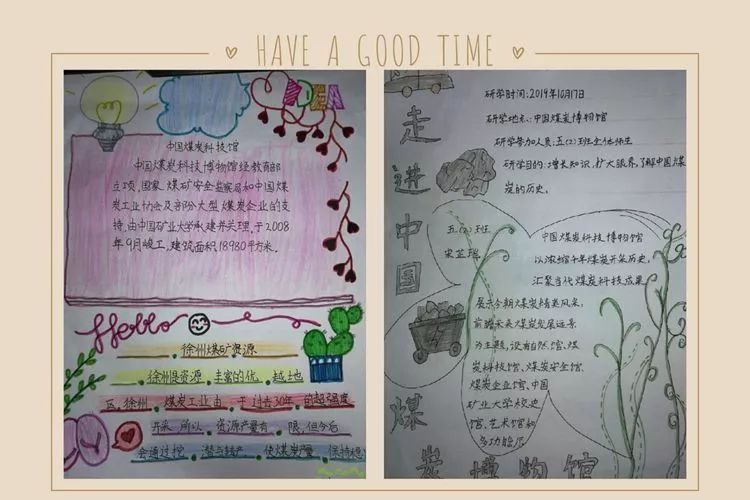 HAVE A GOOD TIME
中国煤炭科技馆
中国煤炭科技博物馆经教育部
立项,国家煤矿安全监察局和中国煤
炭工业协会及部分大型煤炭企业的支
持,由中国矿业大学承建并关理,于2008
年9月峻工,建筑面积18980平方米.
Hello
徐州煤矿资源
徐州是资源丰富的化,越地
区,徐州煤炭工业由于过去30年的超强度
开采所以资源产量有限,但今后
会通过挖潜与转产使煤炭产量保持稳
研学时间:2019年10月17日
研学地点:中国煤炭博物馆
研学参加人员:五(2)班全体师生
研学目的:增长知识,扩大眼界,了解中国煤
炭的历史.
走进中国煤炭博物馆
五(2)班
中国煤炭科技博物馆
以浓缩千年煤炭开采历史,
汇聚当代煤炭科技成果
展示今朝煤炭精英风采,
前瞻未来煤炭发展远景
为主题,设有自然馆、煤
炭科技馆、煤炭安全馆、
煤炭企业馆、中国
矿业大学校史
馆、艺术馆和
多功能厅